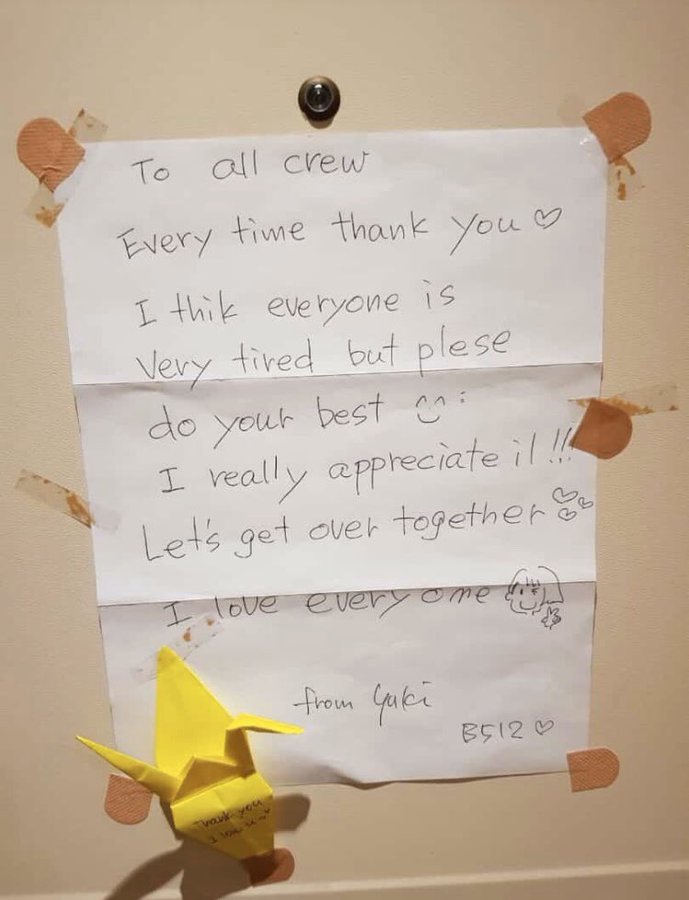 To all crew
Every time thank you♡
I thik everyone is
very tired but plese
do your best
I really appreciate it!!!
Let's get over together
I love everyone
from Yuki
B512♡
Thank you
I love